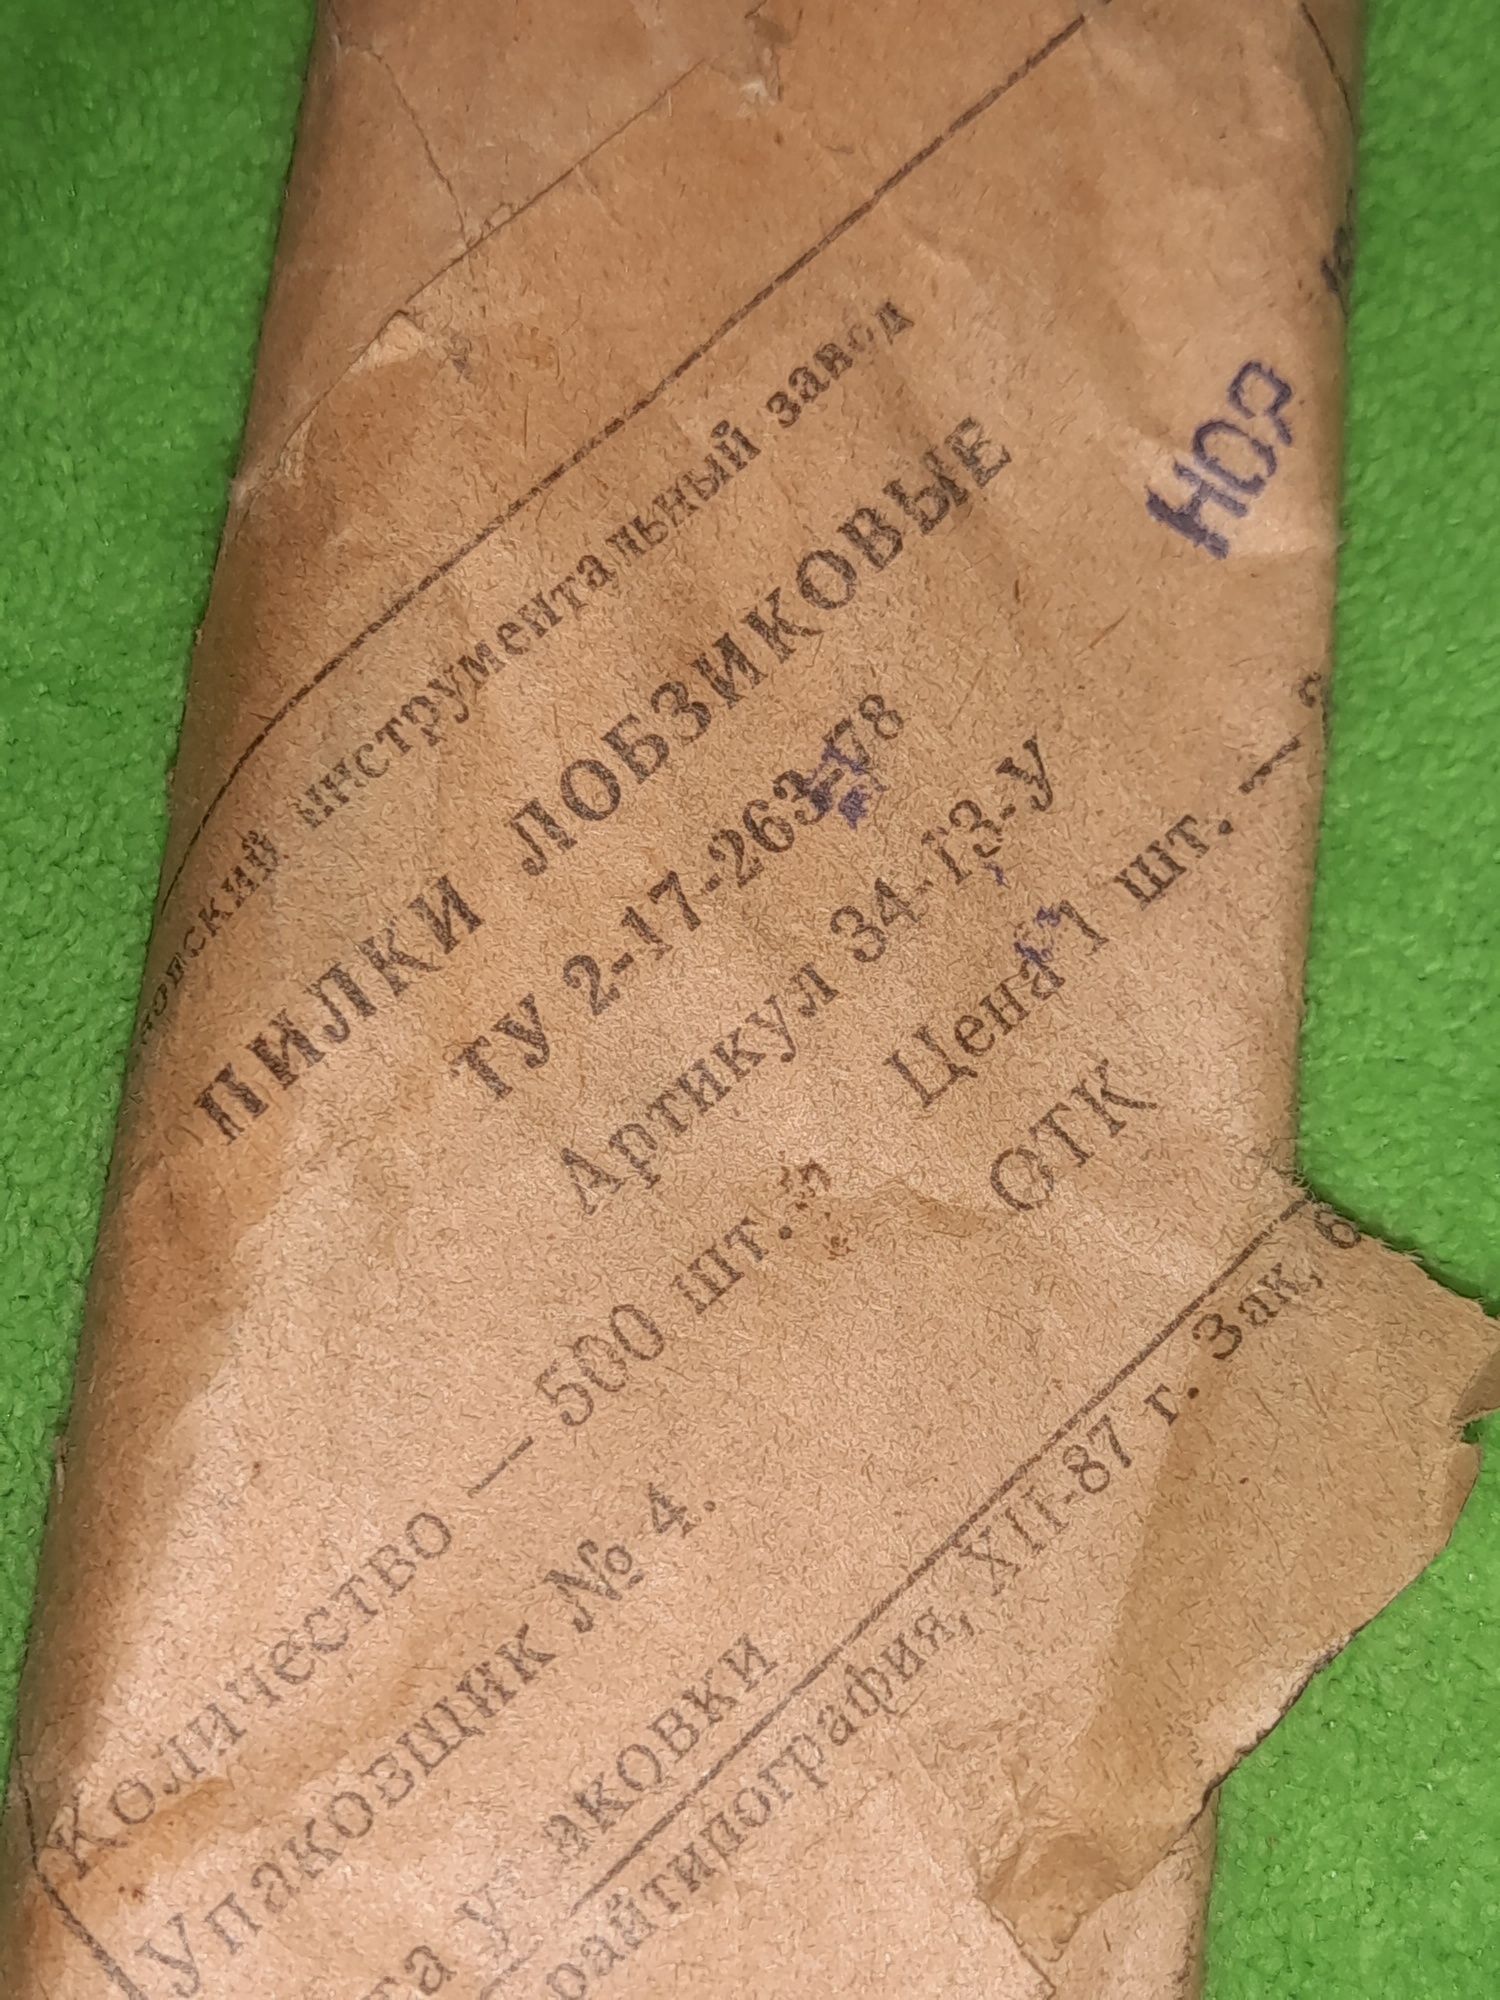 инструментальный завод
ПИЛКИ ЛОБЗИКОВЫЕ
ТУ 2-17-263-78
Артикул 34-13-У
Цена 1 шт. —
Количество — 500 шт.
ОТК
Упаковщик № 4.
та упаковки
райтипография, XII-87 г. Зак. 6
НОЯ